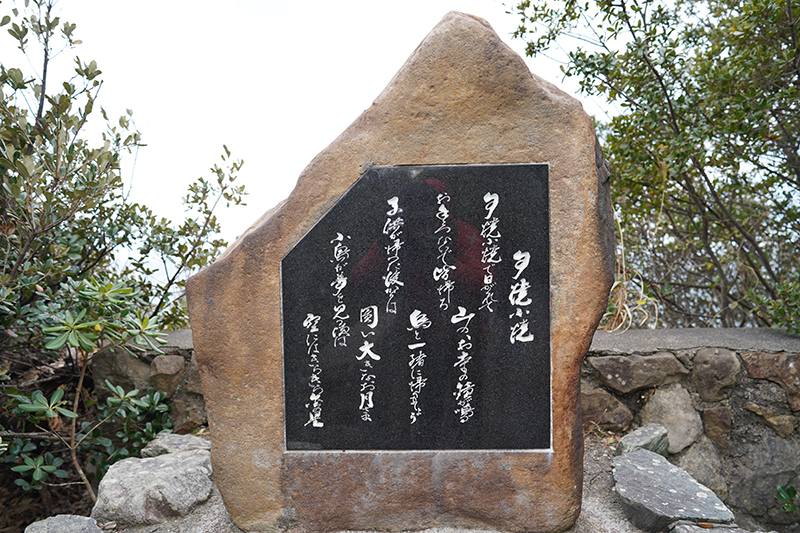 夕焼小焼
夕焼小焼で日がくれて
山のお寺の鐘が鳴る
お手々つないで皆帰ろ
烏と一緒に帰りましょう
子供が帰った後からは
圓い大きなお月さま
小鳥が夢を見る頃は
空にはきらきら金の星